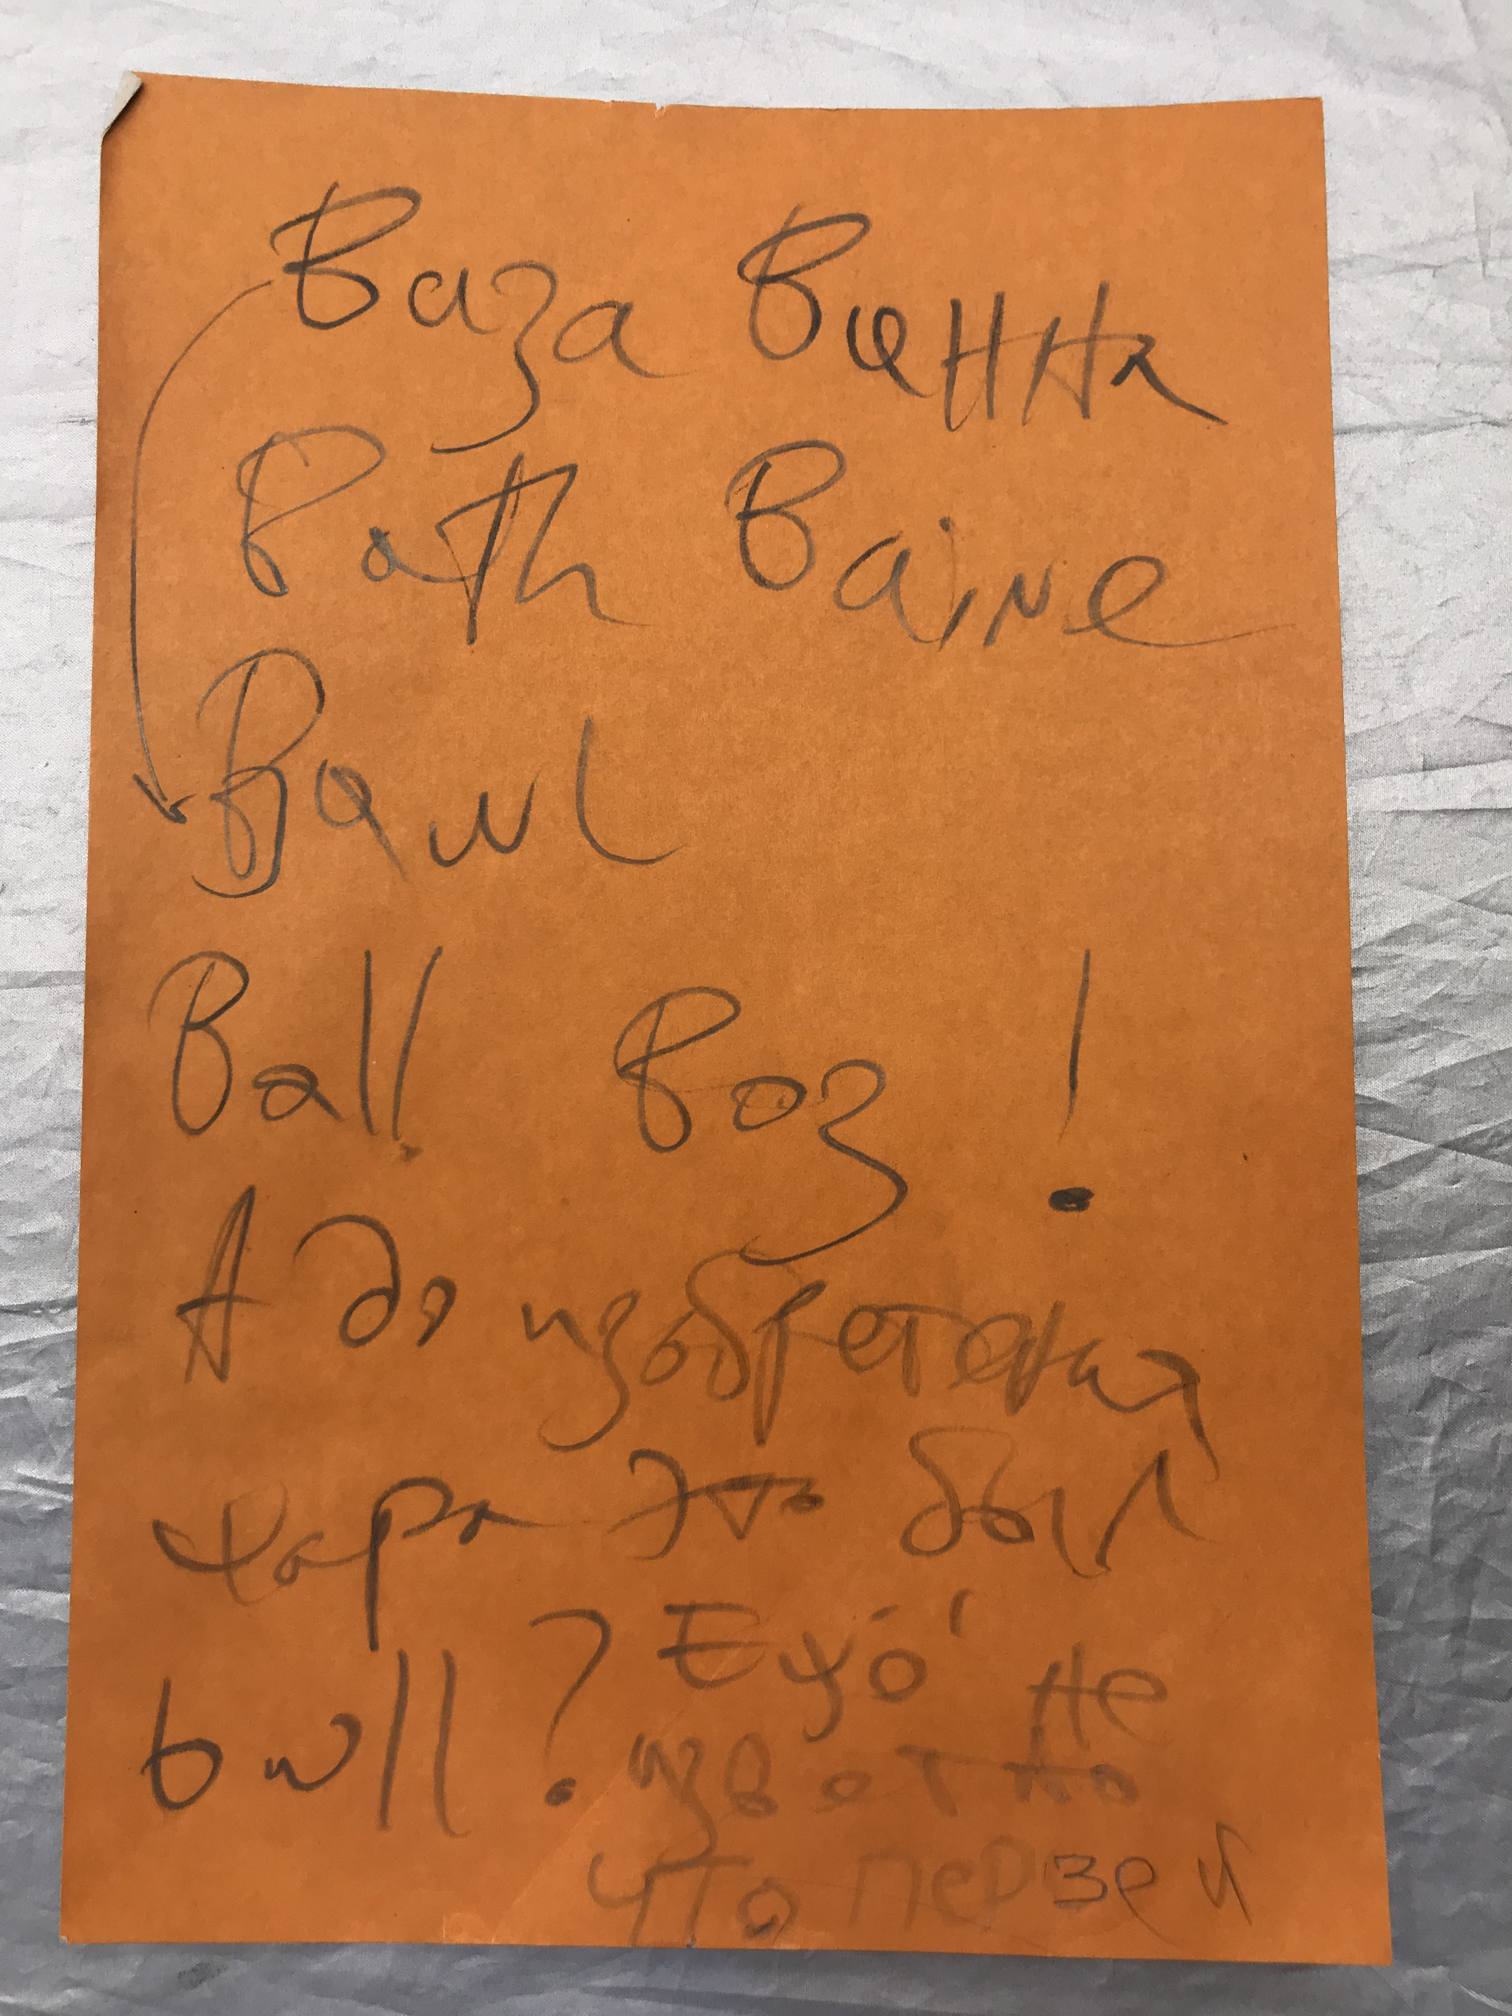 Ваза Ванна
Bath Baine
Bawl
Ball Воз !
А до изобретения
шара это был
bull ? Ещё не
извстно
что перзей